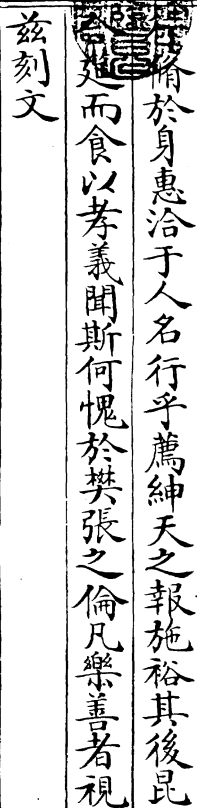 脩於身惠洽于人名行乎薦紳天之報施裕其後昆
廷而食以孝義聞斯何愧於樊張之倫凡樂善者視
茲刻文